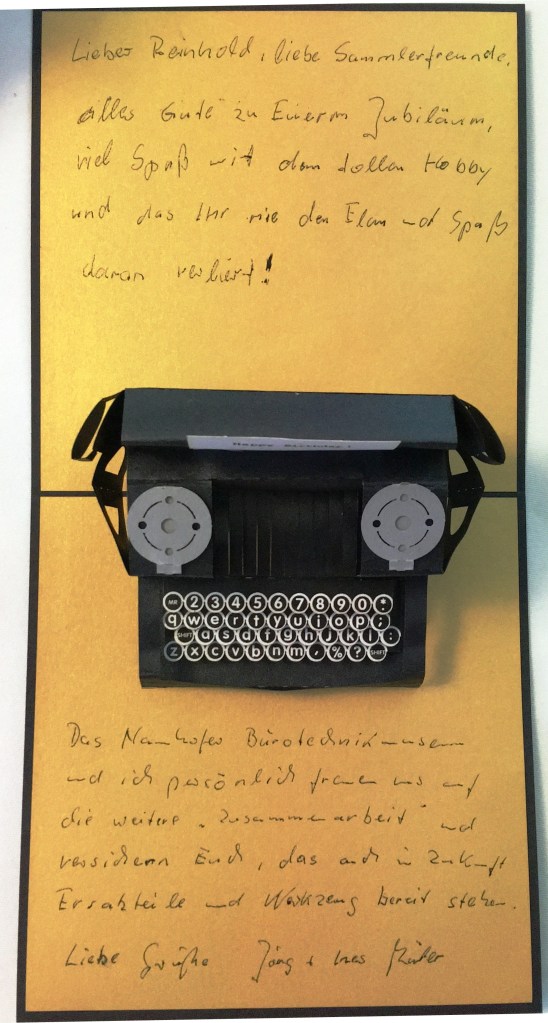 Lieber Reinhold, liebe Sammlerfreunde,
alles Gute zu Eurem Jubiläum,
viel Spaß mit dem tollen Hobby
und das Ihr nie den Elan und Spaß
daran verliert!
Happy Birthday!
MR 2 3 4 5 6 7 8 9 0 *
q w e r t y u i o p ;
SHIFT a s d f g h j k l :
z x c v b n m , % ? SHIFT
Das Bürotechnikmuseum
und ich persönlich freuen uns auf
die weitere "Zusammenarbeit" und
versichern Euch, das auch in Zukunft
Ersatzteile und Werkzeug bereit stehen.
Liebe Grüße Jörg + Ines